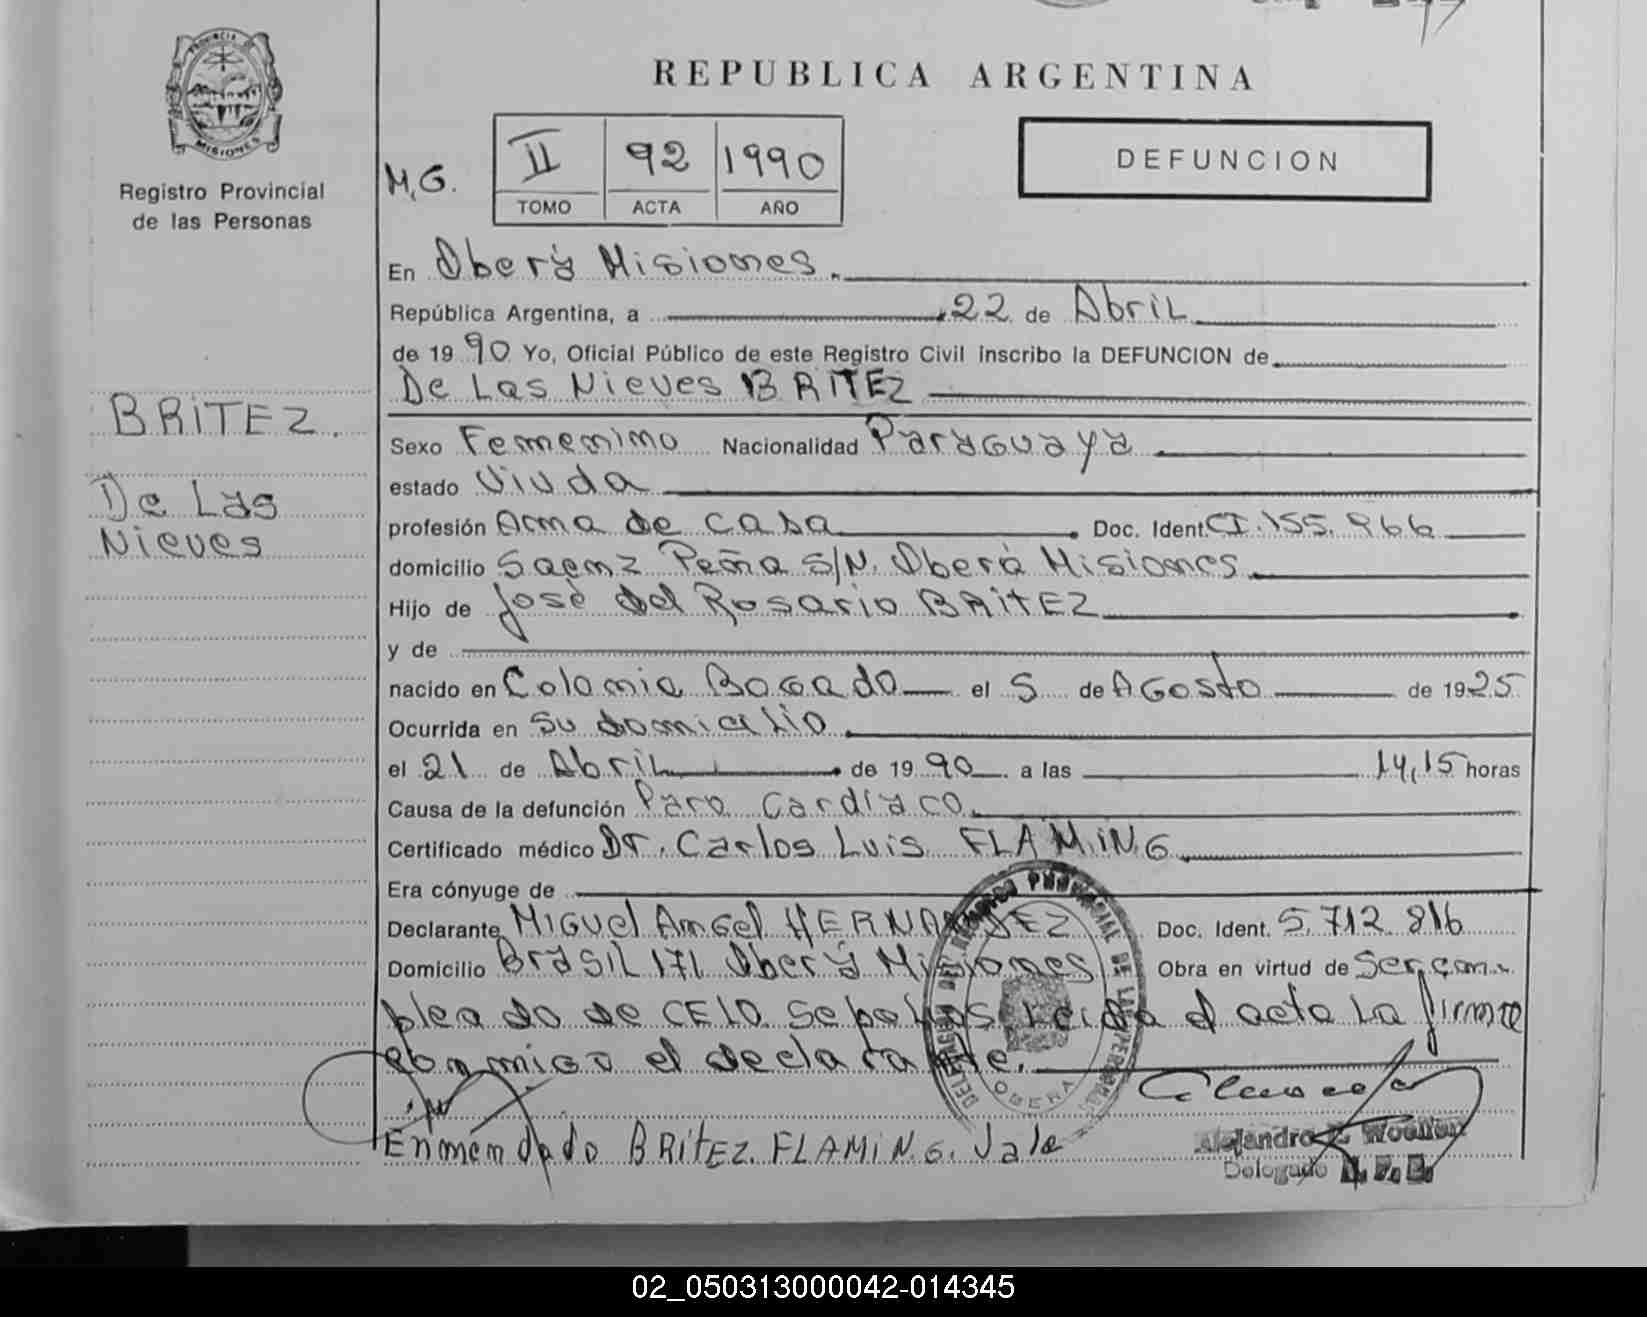 PROVINCIA DE
MISIONES
Registro Provincial
de las Personas
BRITEZ.
De Las
Nieves
REPUBLICA ARGENTINA
M.G.
II 92 1990
TOMO ACTA AÑO
DEFUNCION
En Oberá Misiones.
República Argentina, a 22 de Abril
de 19 90 Yo, Oficial Público de este Registro Civil inscribo la DEFUNCION de
De Las Nieves BRITEZ
Sexo Femenino Nacionalidad Paraguaya
estado Viuda
profesión Ama de casa Doc. Ident. CI. 155.966
domicilio Saenz Peña S/N. Oberá Misiones
Hijo de José del Rosario BRITEZ
y de
nacido en Colonia Bogado el 5 de Agosto de 1925
Ocurrida en Su domicilio
el 21 de Abril de 19 90 a las 14,15 horas
Causa de la defunción Paro Cardíaco
Certificado médico Dr. Carlos Luis FLAMING
Era cónyuge de
Declarante Miguel Angel HERNANDEZ Doc. Ident. 5.712.816
Domicilio Brasil 171 Oberá Misiones Obra en virtud de Ser em
pleado de CELO Sepelios Leida el acta La firma
conmigo el declarante.
Enmendado BRITEZ. FLAMING. Vale
OBERA
Alejandro
Delegado
02_050313000042-014345